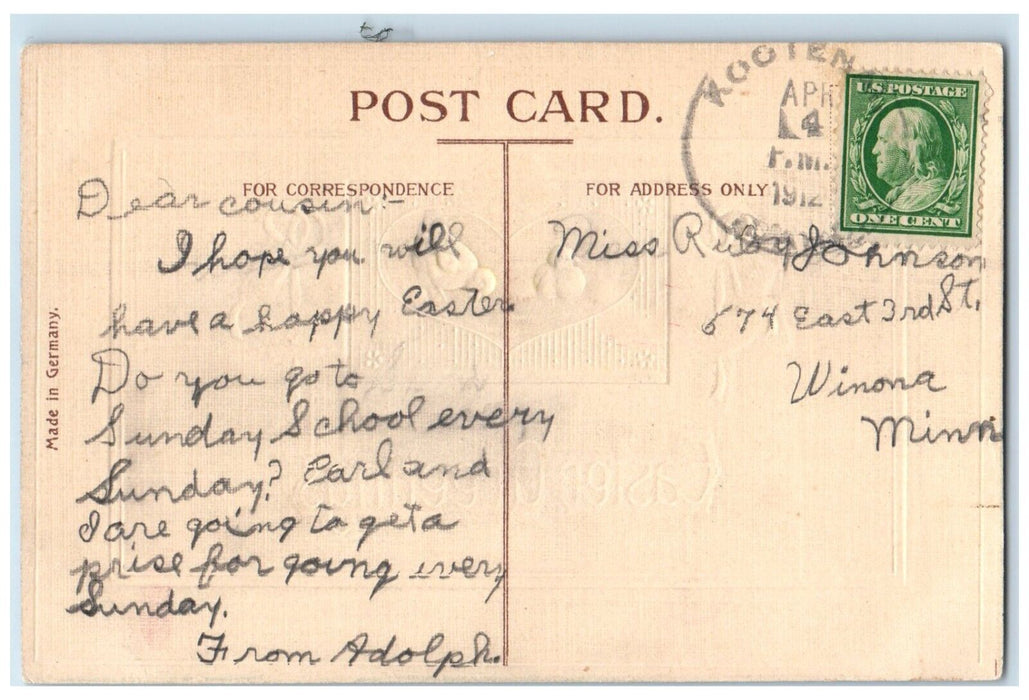 POST CARD.
FOR CORRESPONDENCE
FOR ADDRESS ONLY
Made in Germany.
Dear cousin:-
I hope you will
have a happy Easter.
Do you go to
Sunday School every
Sunday? Earl and
I are going to get a
prise for going every
Sunday.
From Adolph.
APR
4
P.M.
1912
U.S. POSTAGE
ONE CENT
Miss Ruby Johnson
574 East 3rd St,
Winona
Minn
Easter